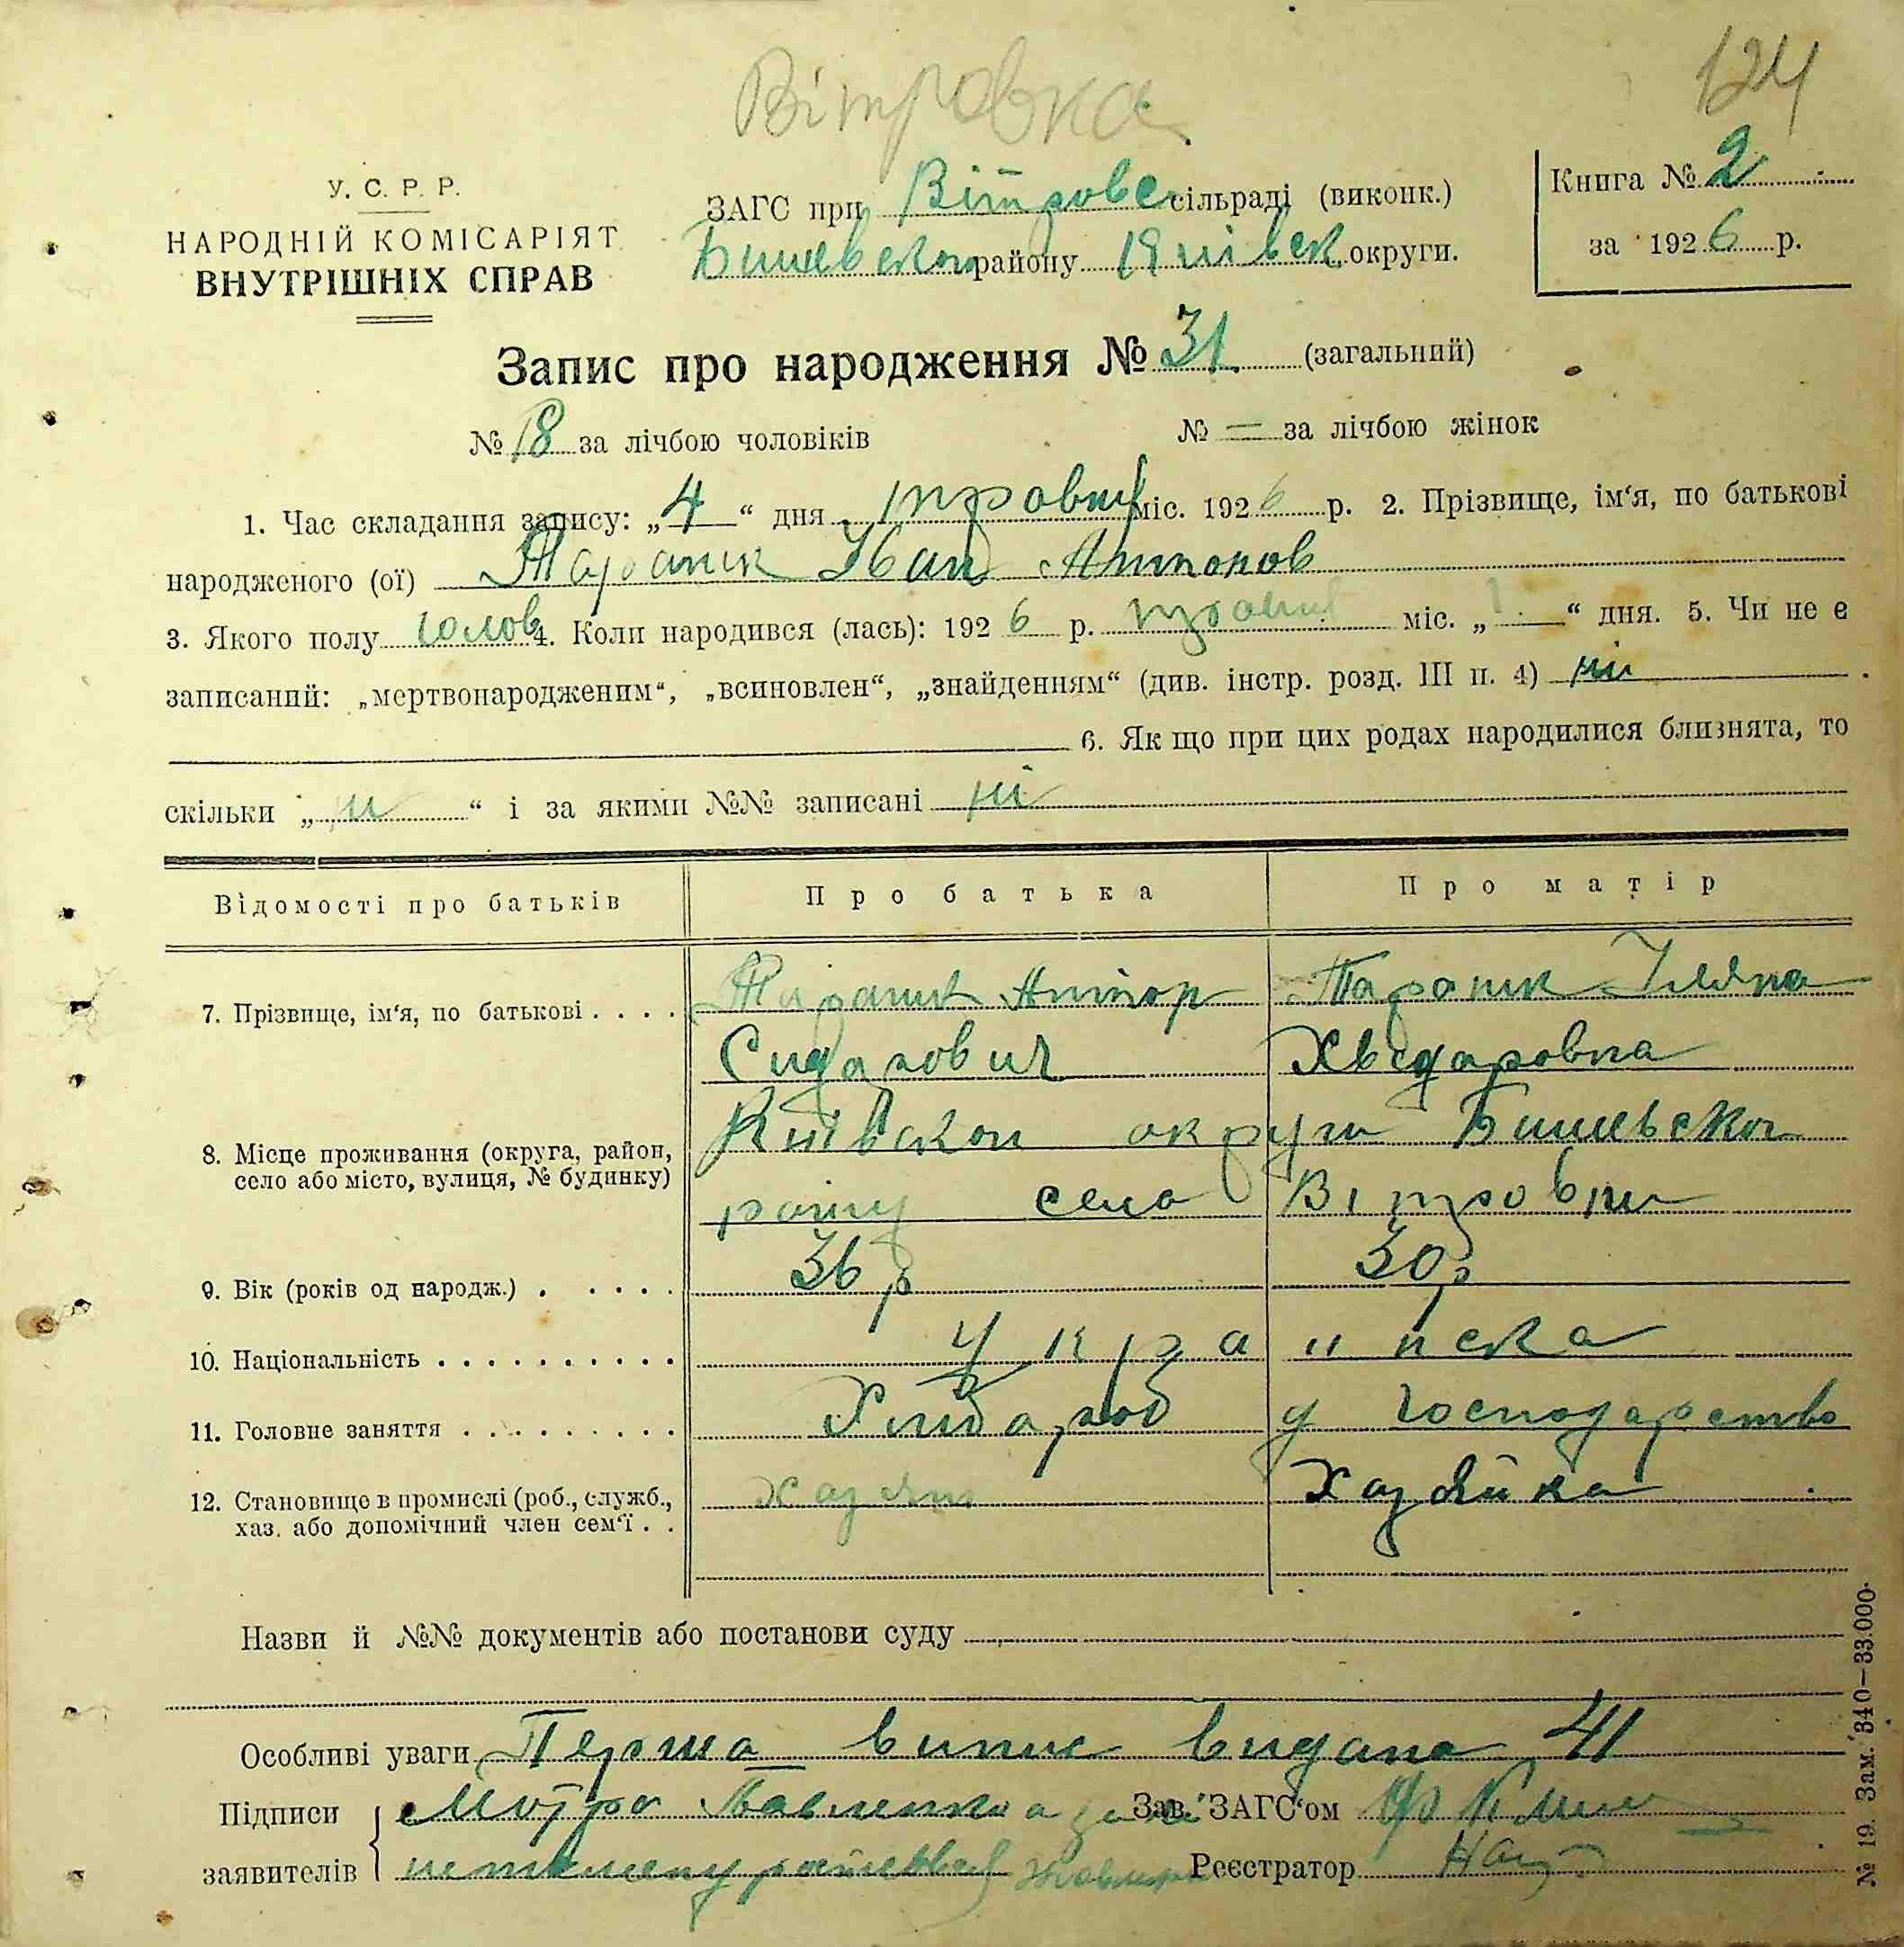 Вітровка
124
У. С. Р. Р.
НАРОДНІЙ КОМІСАРІЯТ
ВНУТРІШНІХ СПРАВ
ЗАГС при Вітровс сільраді (виконк.)
Бишевськом району округи.
Книга № 2
за 1926 р.
Запис про народження № 31 (загальний)
№ 18 за лічбою чоловіків
№ = за лічбою жінок
1. Час складання запису: „4“ дня міс. 1926 р. 2. Прізвище, ім‘я, по батькові
народженого (ої) Тараник Іван Антонов
3. Якого полу 4. Коли народився (лась): 1926 р. міс. „1“ дня. 5. Чи не є
записаний: „мертвонародженим“, „всиновлен“, „знайденням“ (див. інстр. розд. III п. 4) ні
6. Як що при цих родах народилися близнята, то
скільки „ “ і за якими №№ записані ні
Відомості про батьків
Про батька
Про матір
7. Прізвище, ім‘я, по батькові . . . .
Антон
Тараник
Сидорович
Хведоровна
8. Місце проживання (округа, район,
село або місто, вулиця, № будинку)
округи Бишевскои
раину село Вітровки
9. Вік (років од народж.) . . . . .
36 р
30 р
10. Національність . . . . . . . . . .
Укра инска
11. Головне заняття . . . . . . . . .
Хлибороб
у господарство
12. Становище в промислі (роб., служб.,
хаз. або допомічний член сем‘ї . .
хазяин
Хазяйка
Назви й №№ документів або постанови суду
Особливі уваги Перша випис видана 41
Підписи
заявителів
Зав. ЗАГС‘ом
Реєстратор
№ 19. Зам. 340—33.000.